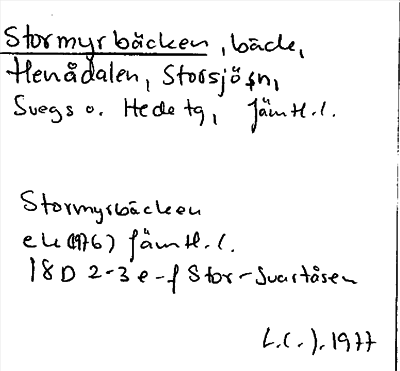 Stormyrbäcken, bäck,
Henådalen, Storsjö sn,
Svegs o. Hede tg, Jämtl. l.
Stormyrbäcken
ek (1976) Jämtl. l.
18D 2-3 e-f Stor-Svartåsen
L.(.). 1977